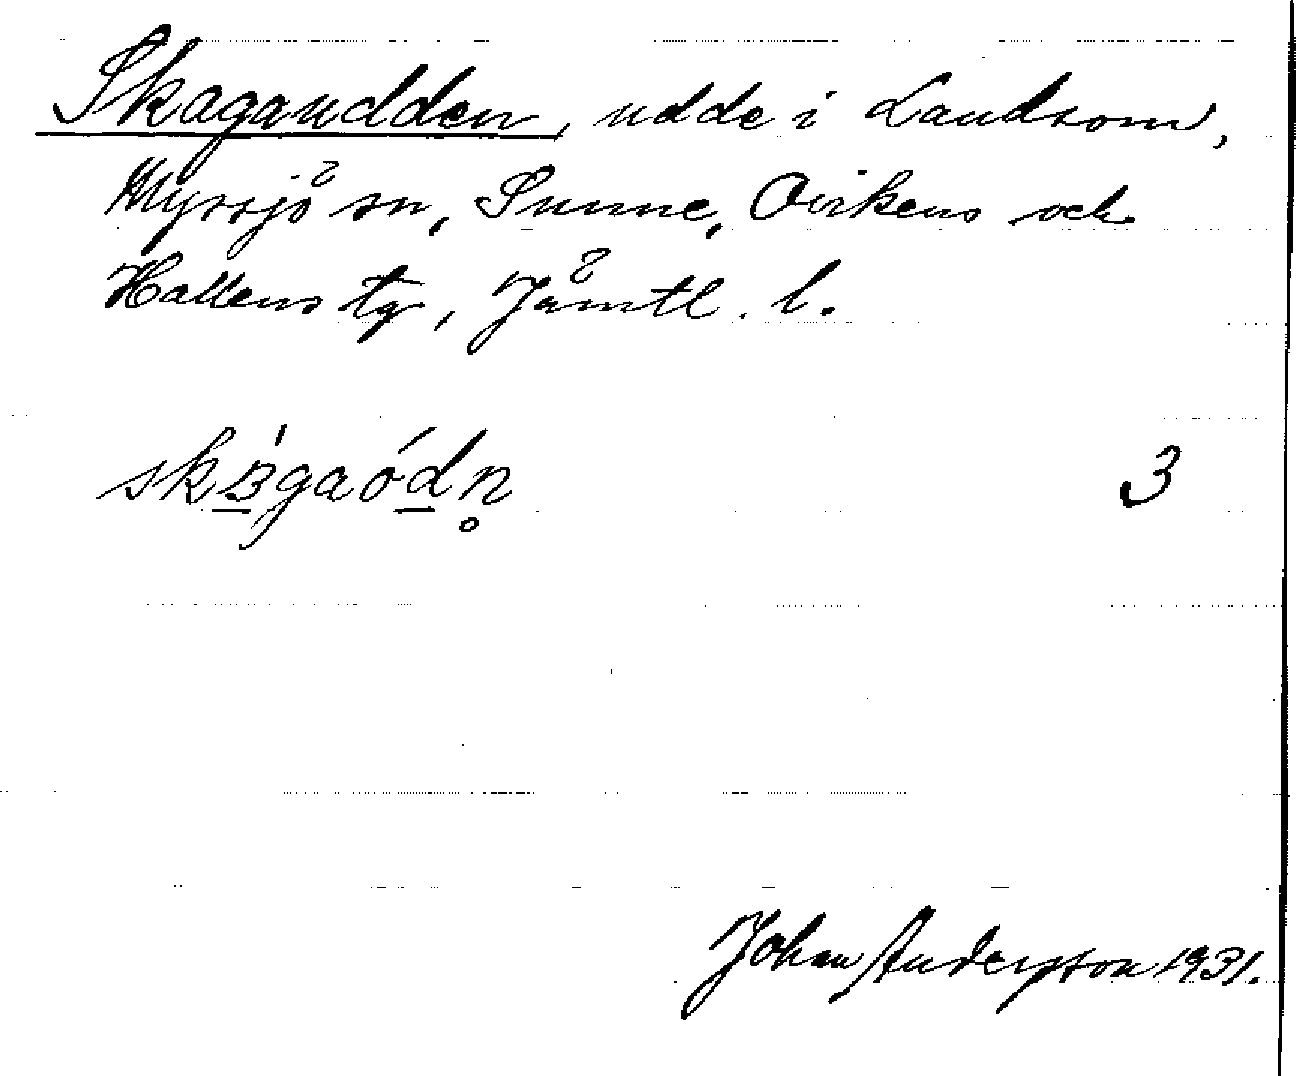 Skagaudden, udde i Landsom,
Myssjö sn, Sunne, Ovikens och
Hallens tg, Jämtl. l.
3
Johan Andersson 1931.